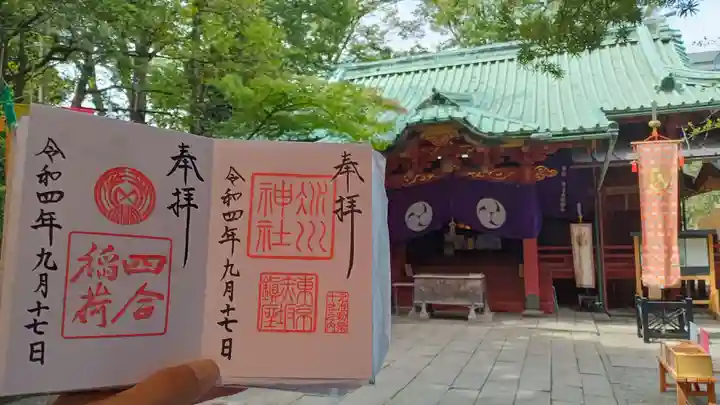 奉拝
氷川
神社
東京
赤坂
鎮座
令和四年九月十七日
奉拝
四合
稲荷
令和四年九月十七日